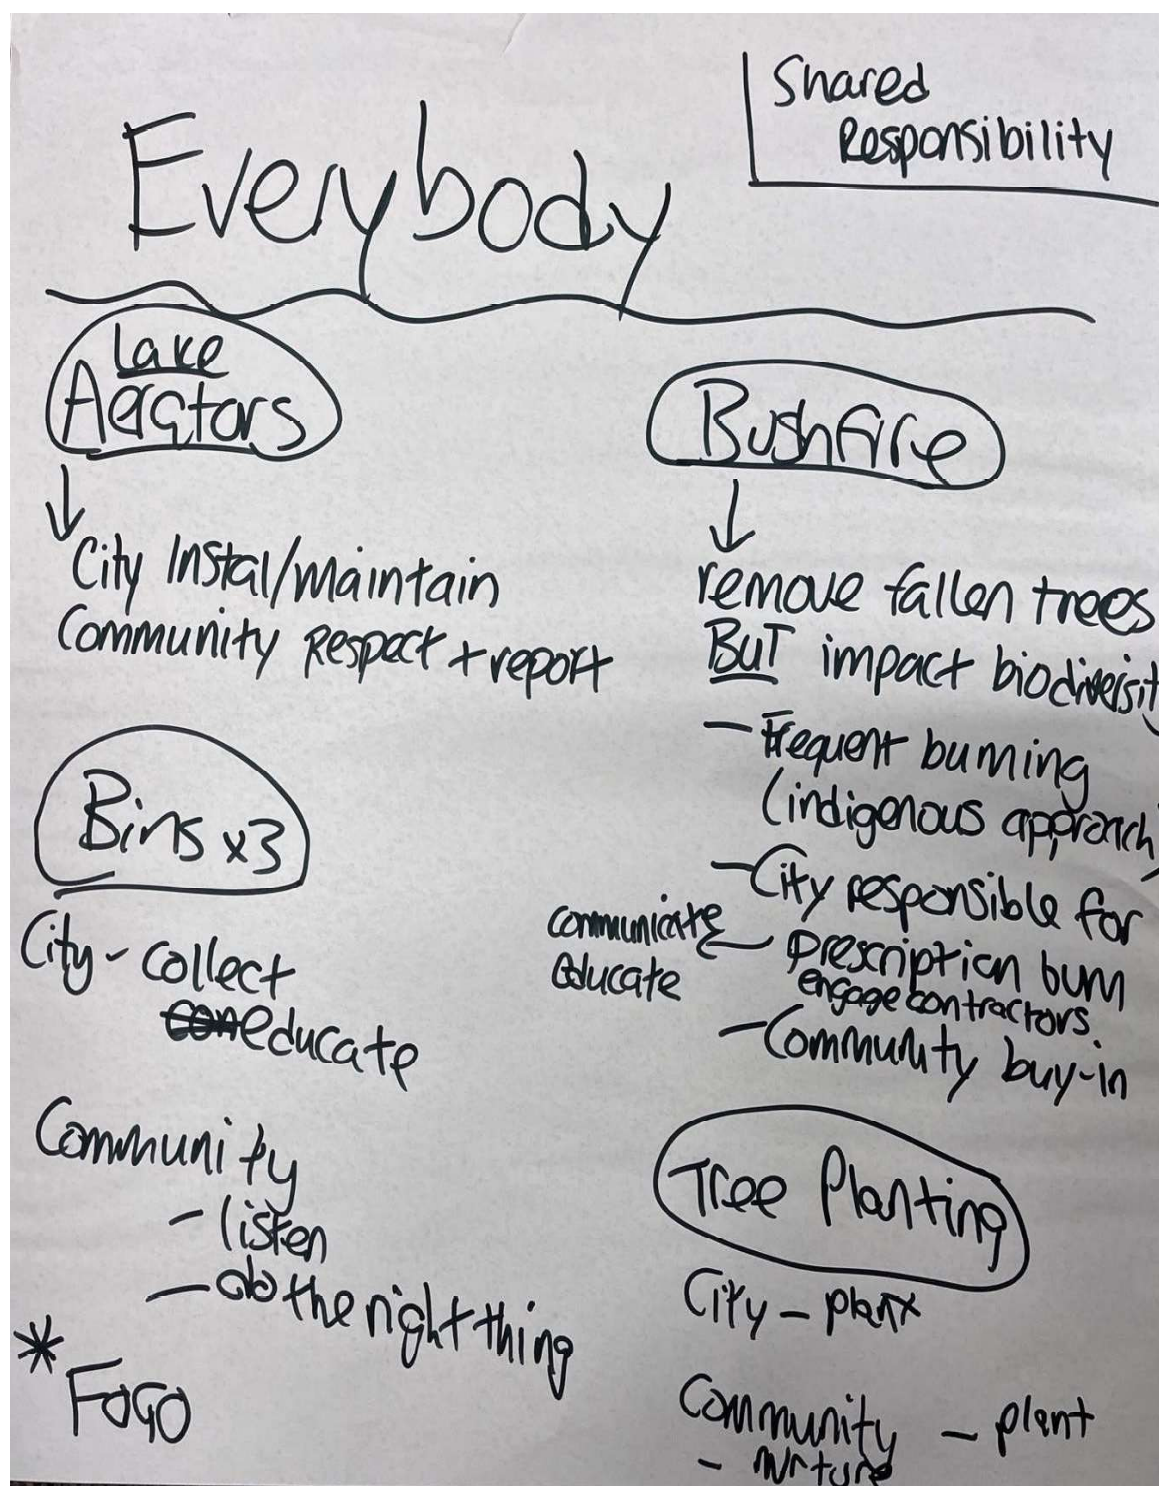 Shared
Responsibility
Everybody
Lake
Aerators
City Instal/maintain
Community Respect + report
Bins x3
City - collect
educate
Community
- listen
- do the right thing
* FOGO
Bushfire
remove fallen trees
BUT impact biodiversity
- Frequent burning
(indigenous approach)
- City responsible for
prescription burn
engage contractors
communicate
educate
- Community buy-in
Tree Planting
City - plant
Community - plant
- nurture